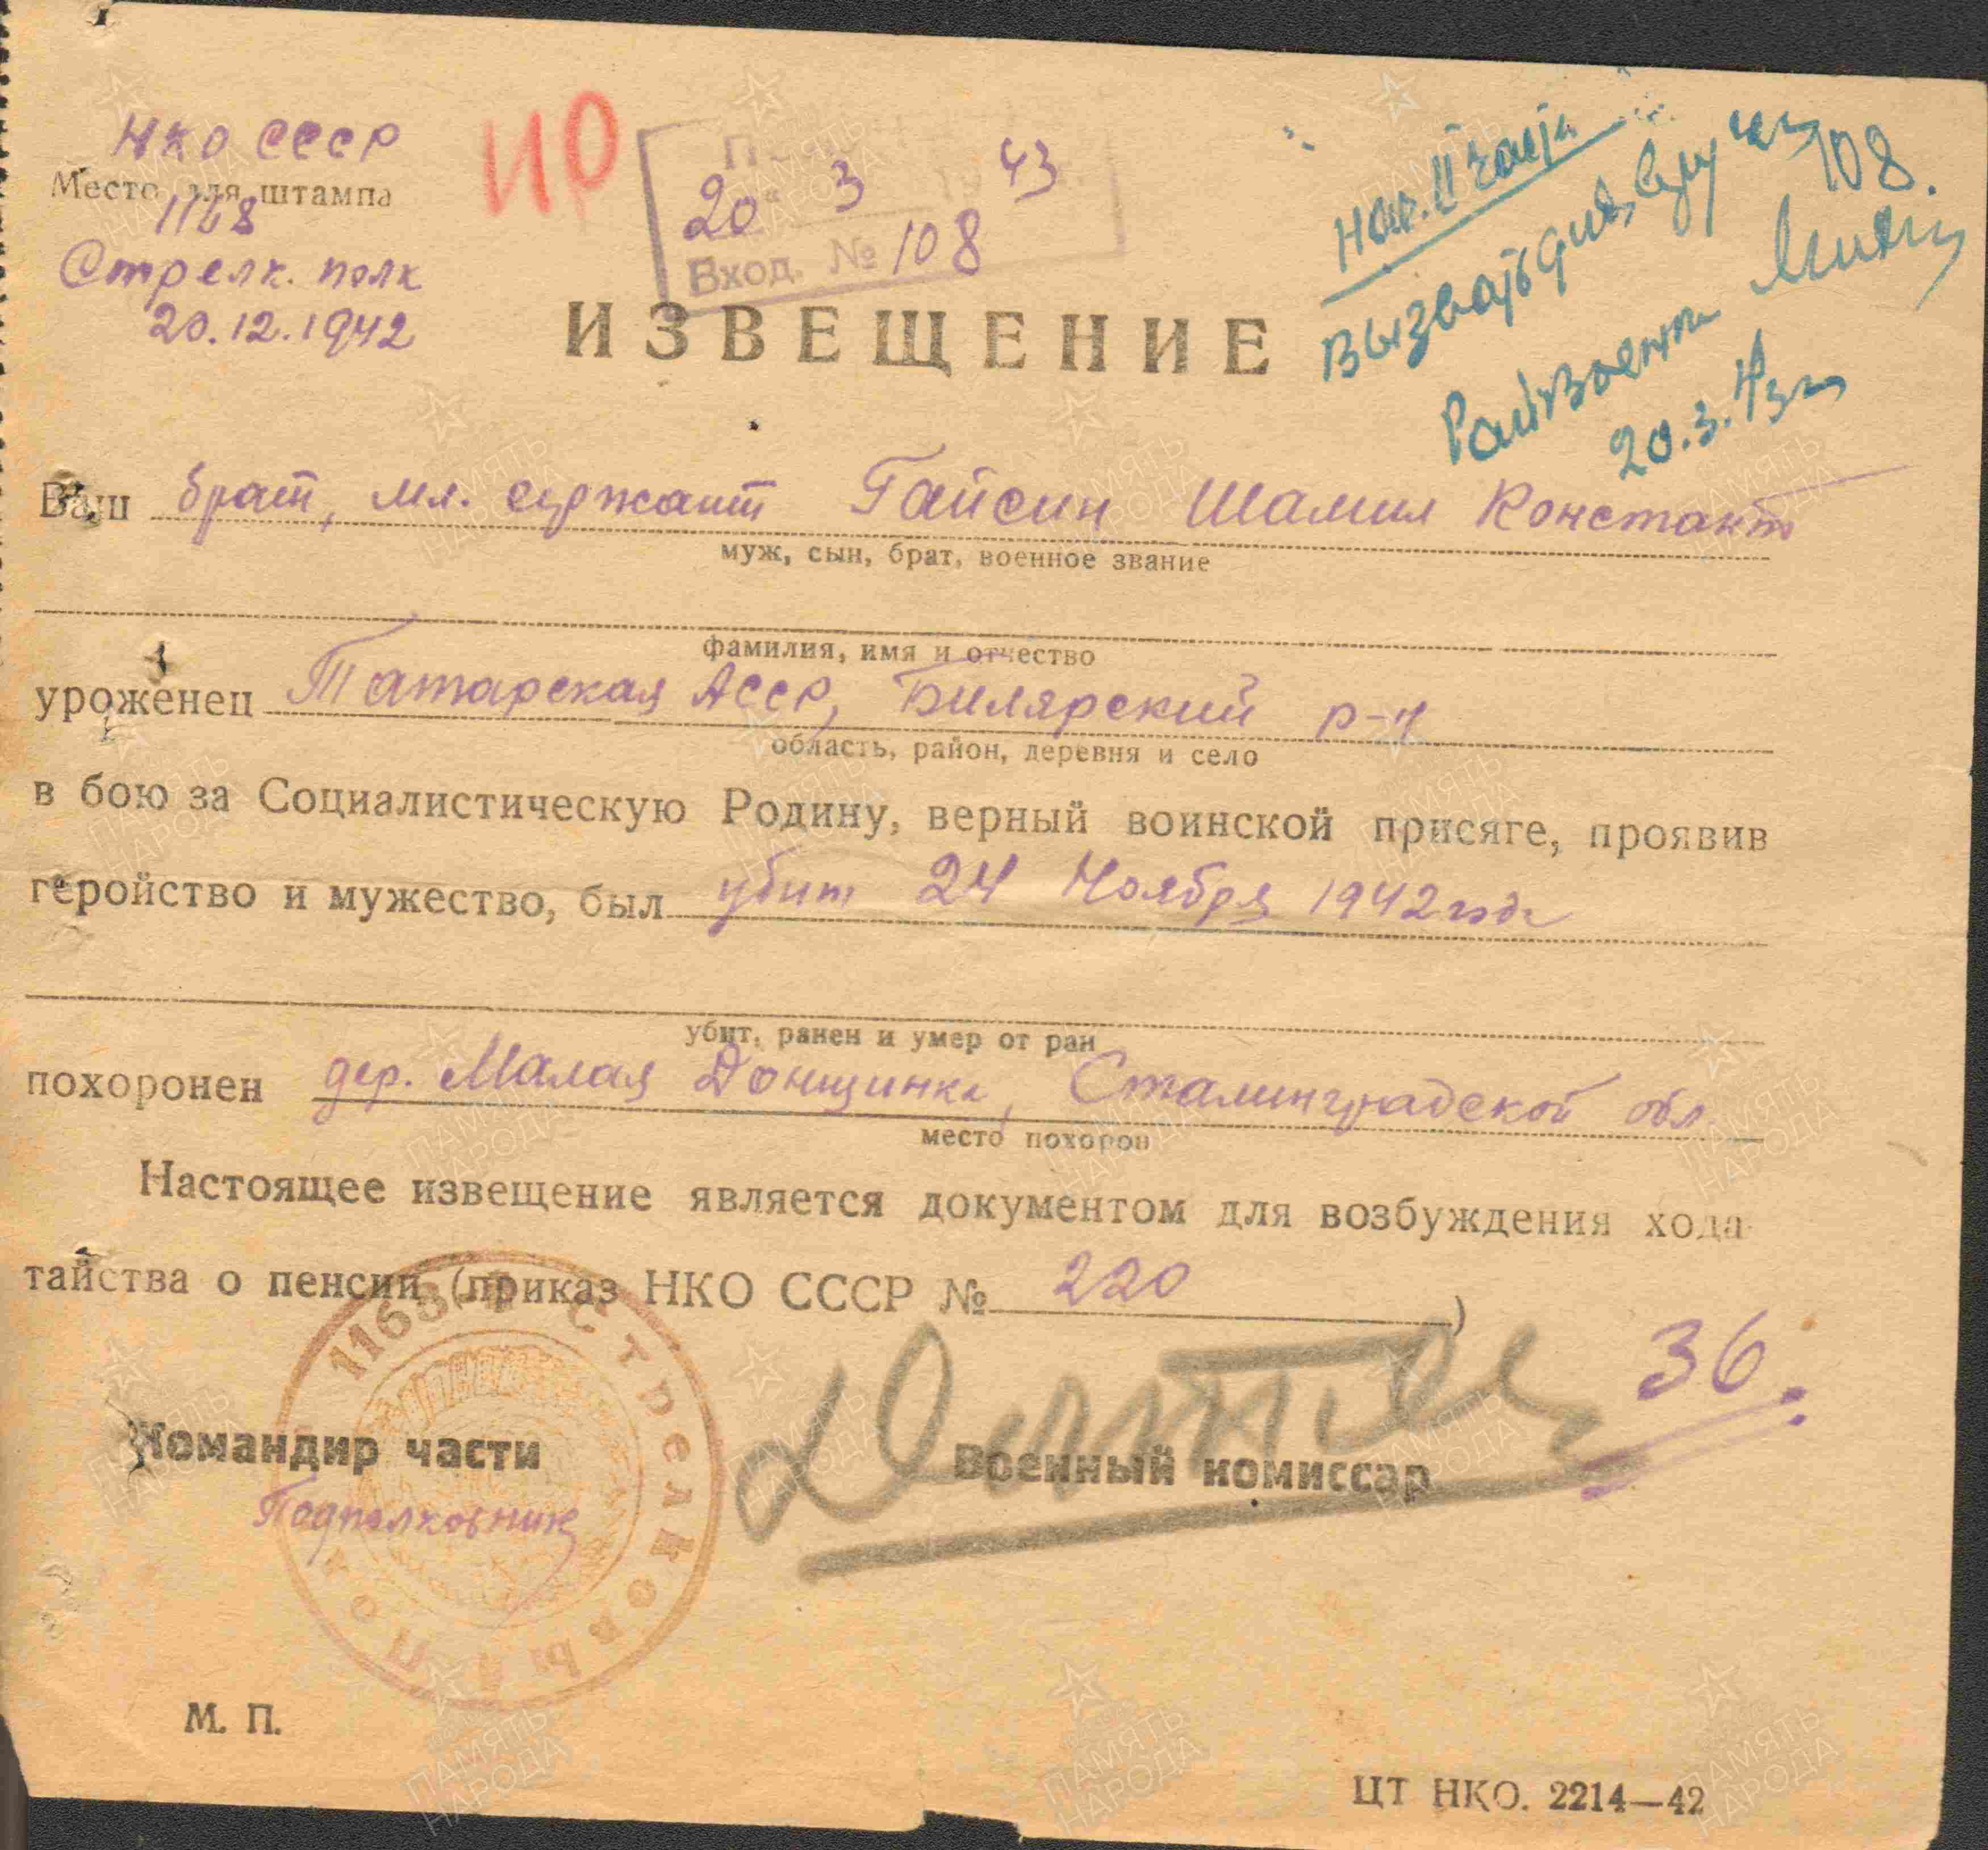 НКО СССР
Место для штампа
1168
Стрелк. полк
20.12.1942
ИР
20 3 43
Вход. № 108
108.
Нач. II части
Вызвать для вручен
Райвоенком
20.3.43г
ИЗВЕЩЕНИЕ
Ваш брат, мл. сержант Гайсин Шамил Константи
муж, сын, брат, военное звание
фамилия, имя и отчество
уроженец Татарская АССР, Билярский р-н
область, район, деревня и село
в бою за Социалистическую Родину, верный воинской присяге, проявив
геройство и мужество, был убит 24 Ноября 1942 года
убит, ранен и умер от ран
похоронен дер. Малая Донщинка, Сталинградской обл.
место похорон
Настоящее извещение является документом для возбуждения хода-
тайства о пенсии (приказ НКО СССР № 220)
36.
1168-й Стрелковый Полк
Командир части
Военный комиссар
Подполковник
М. П.
ЦТ НКО. 2214—42
ПАМЯТЬ НАРОДА